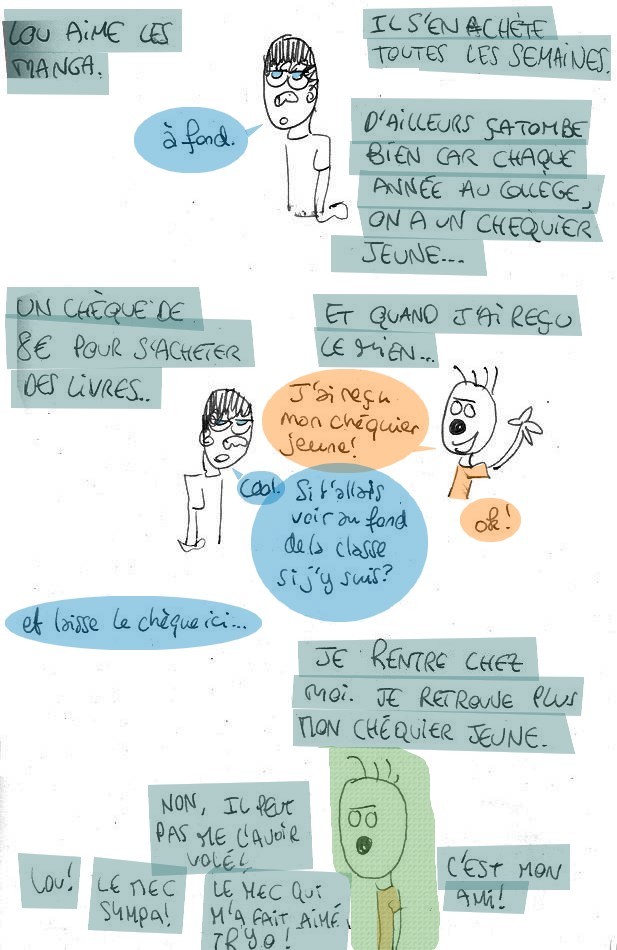 LOU AIME LES
MANGA.
à fond.
IL S'EN ACHÈTE
TOUTES LES SEMAINES.
D'AILLEURS ÇA TOMBE
BIEN CAR CHAQUE
ANNÉE AU COLLÈGE,
ON A UN CHEQUIER
JEUNE...
UN CHÈQUE DE
8€ POUR S'ACHETER
DES LIVRES..
ET QUAND J'AI REÇU
LE MIEN...
J'ai reçu
mon chéquier
jeune!
Cool.
Si t'allais
voir au fond
de la classe
si j'y suis?
ok!
et laisse le chèque ici...
JE RENTRE CHEZ
MOI. JE RETROUVE PLUS
MON CHÉQUIER JEUNE.
NON, IL PEUT
PAS ME L'AVOIR
VOLÉ!
LOU!
LE MEC
SYMPA!
LE MEC QUI
M'A FAIT AIMÉ
TRYO!
C'EST MON
AMI!